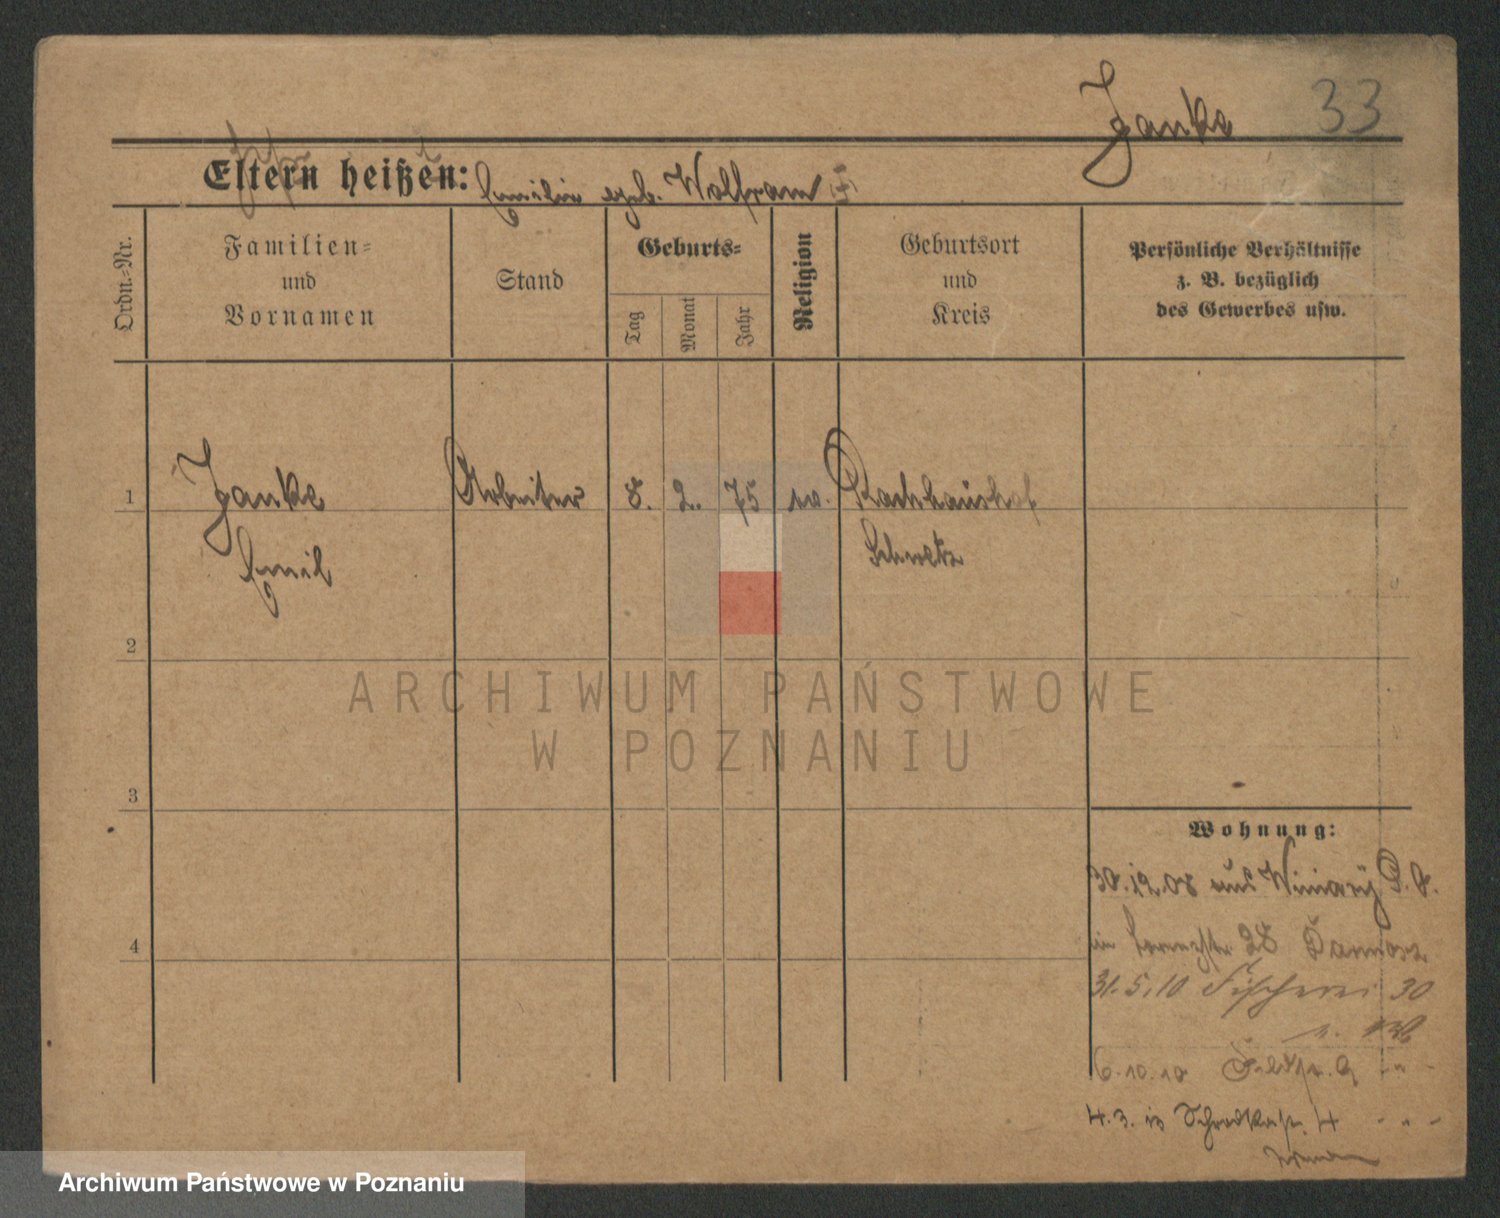 Janke 33
Eltern heißen: Emilie geb. Wolfram
Ordn.-Nr.
Familien-
und
Vornamen
Stand
Geburts-
Tag
Monat
Jahr
Religion
Geburtsort
und
Kreis
Persönliche Verhältnisse
z. B. bezüglich
des Gewerbes usw.
1 Janke Arbeiter 8. 2. 75 ev.
Emil Schwetz
2
ARCHIWUM PAŃSTWOWE
W POZNANIU
3
Wohnung:
30.12.08 aus Winiary
28
4
31.5.10 Fischerei 30
6.10.10
4.3. 4 " "
Archiwum Państwowe w Poznaniu